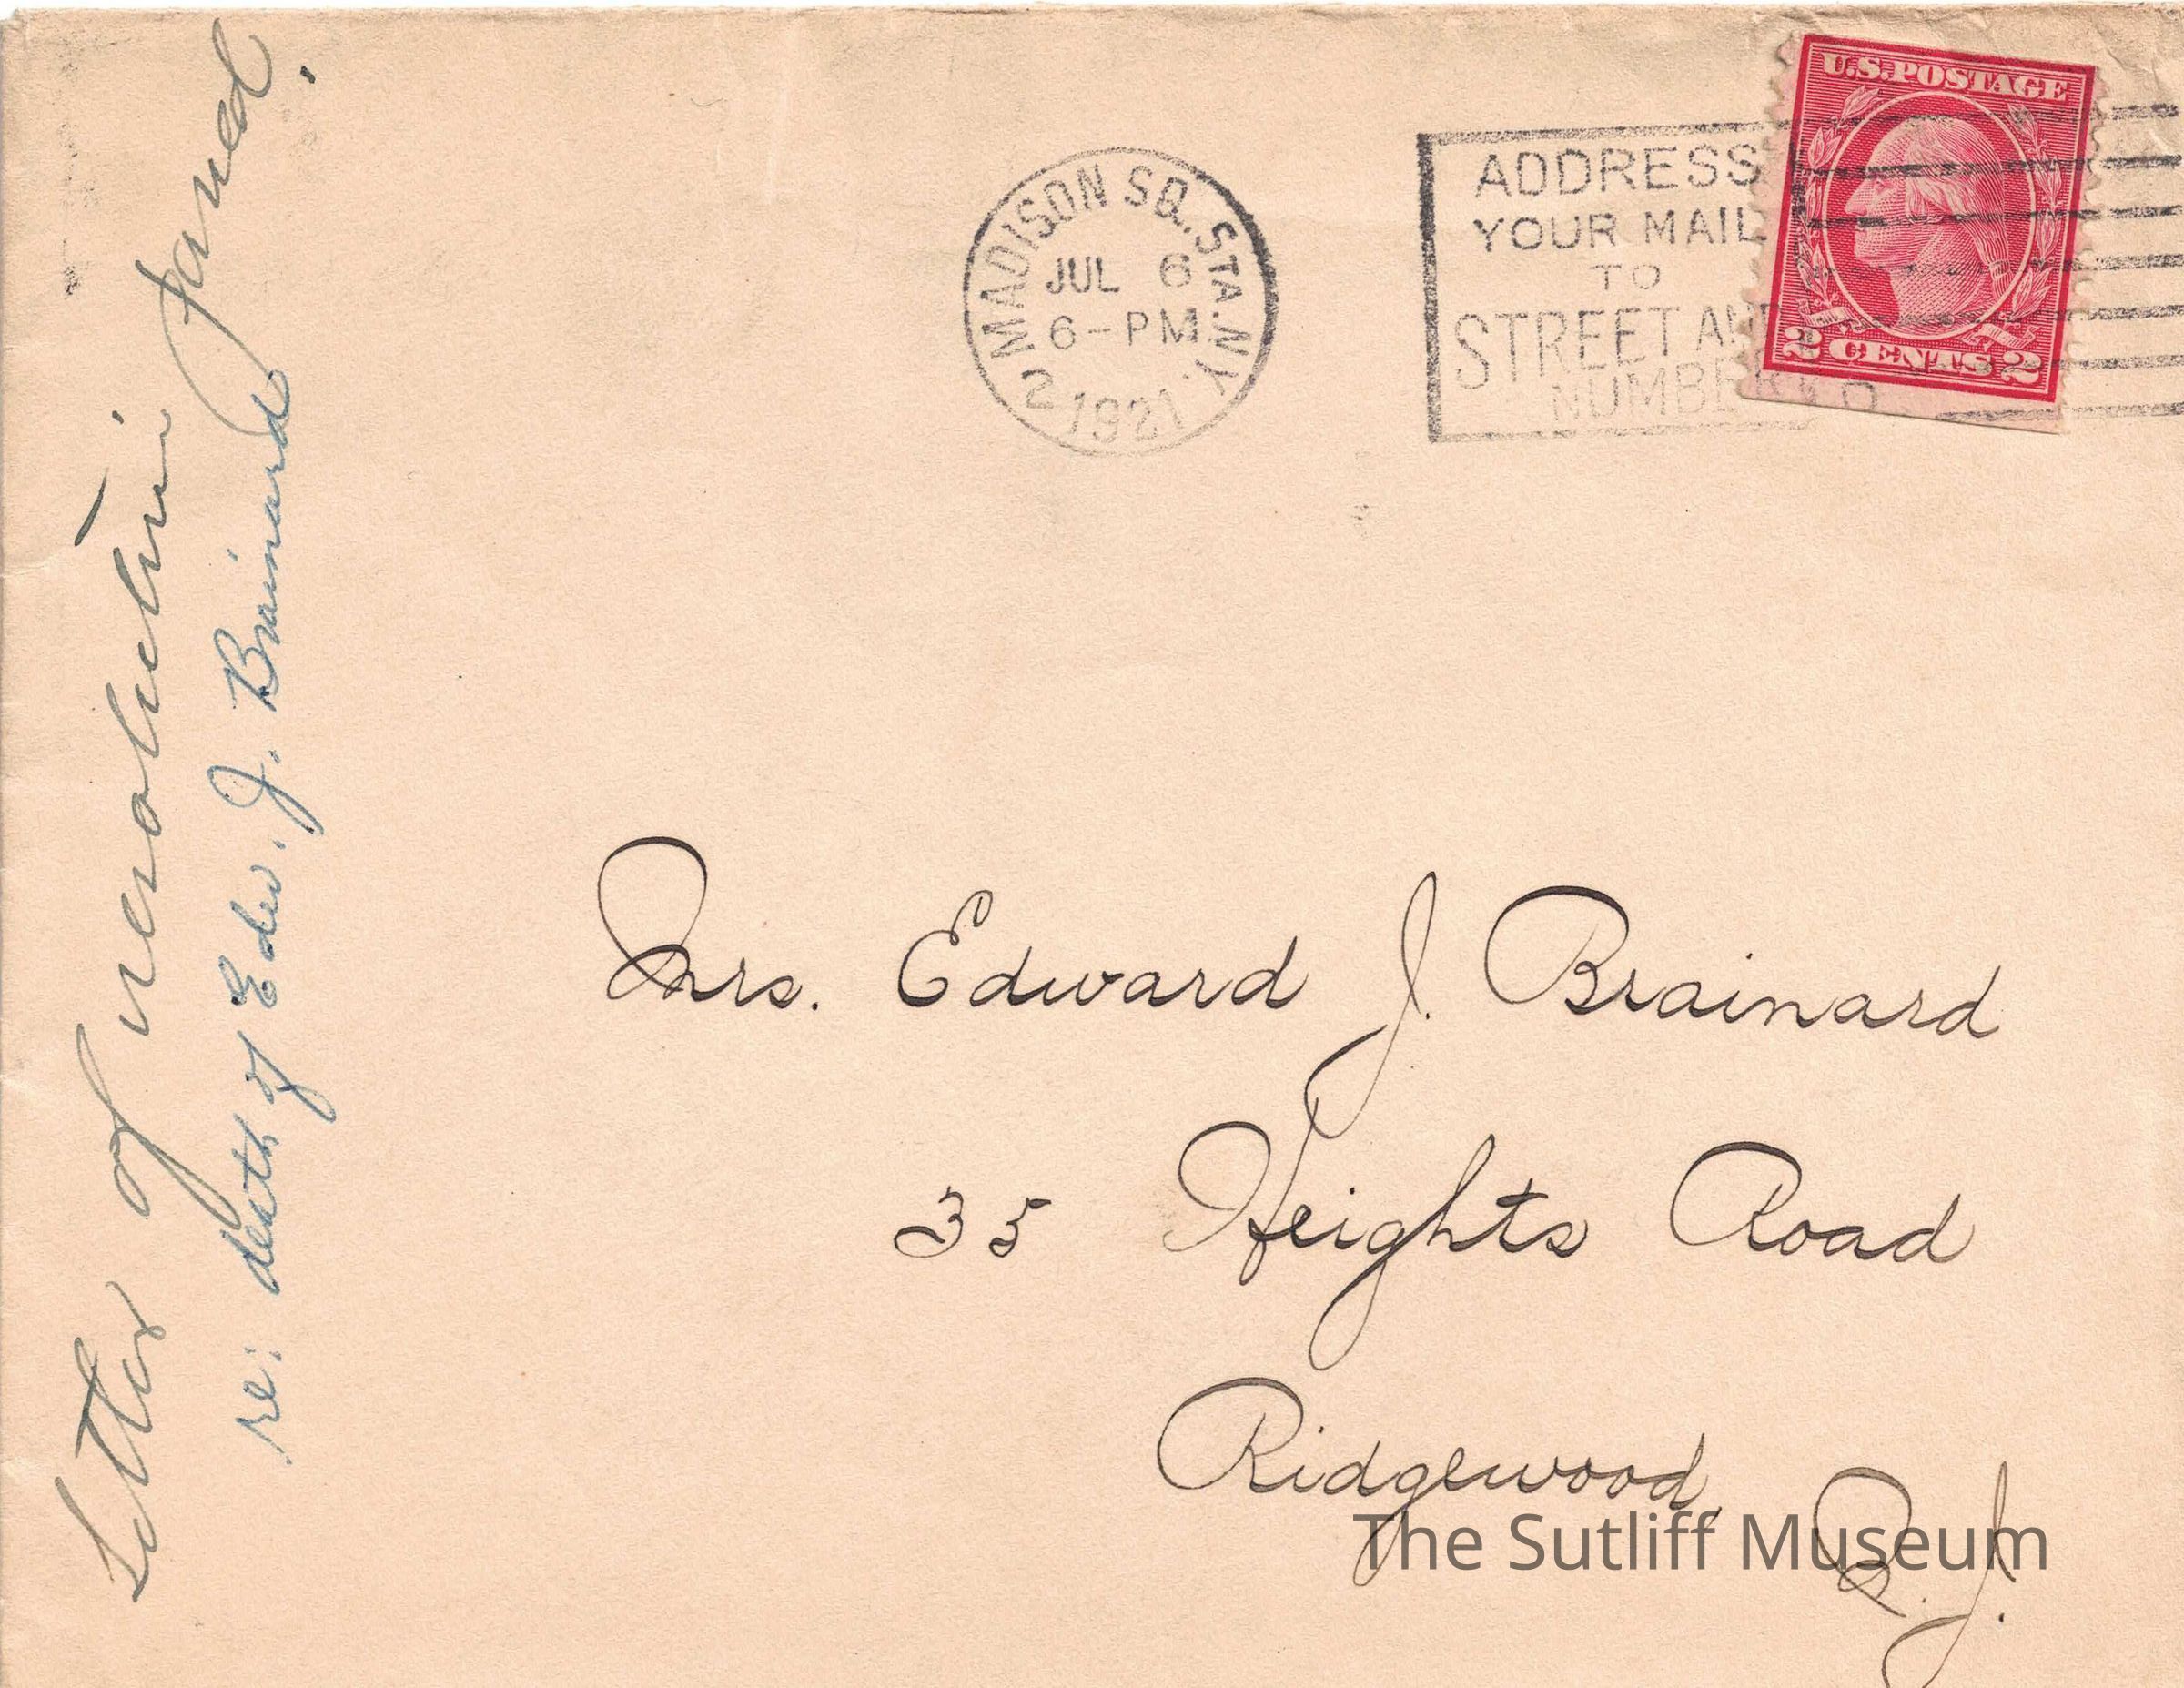 Letter of resolution passed.
re: death of Edw. J. Brainard
MADISON SQ. STA. N.Y.
JUL 6
6-PM
2 1921
ADDRESS
YOUR MAIL
TO
STREET AND
NUMBER
U.S. POSTAGE
2 CENTS 2
Mrs. Edward J. Brainard
35 Heights Road
Ridgewood,
N. J.
The Sutliff Museum